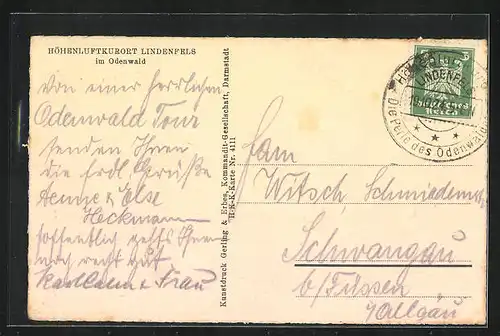 HÖHENLUFTKURORT LINDENFELS
im Odenwald
Von einer herrlichen
Odenwald Tour
senden Ihnen
die frdl. Grüße
Aenne & Else
Heckmann
hoffentlich gehts Ihnen
recht gut
& Frau
Kunstdruck Gerling & Erbes, Kommandit-Gesellschaft, Darmstadt
H-K-Karte Nr. 4111
LINDENFELS
Die Perle des Odenwalds
5
Deutsches
Reich
Fam
Witsch, Schmiedemstr.
Schwangau
b/Füssen
i/Allgäu